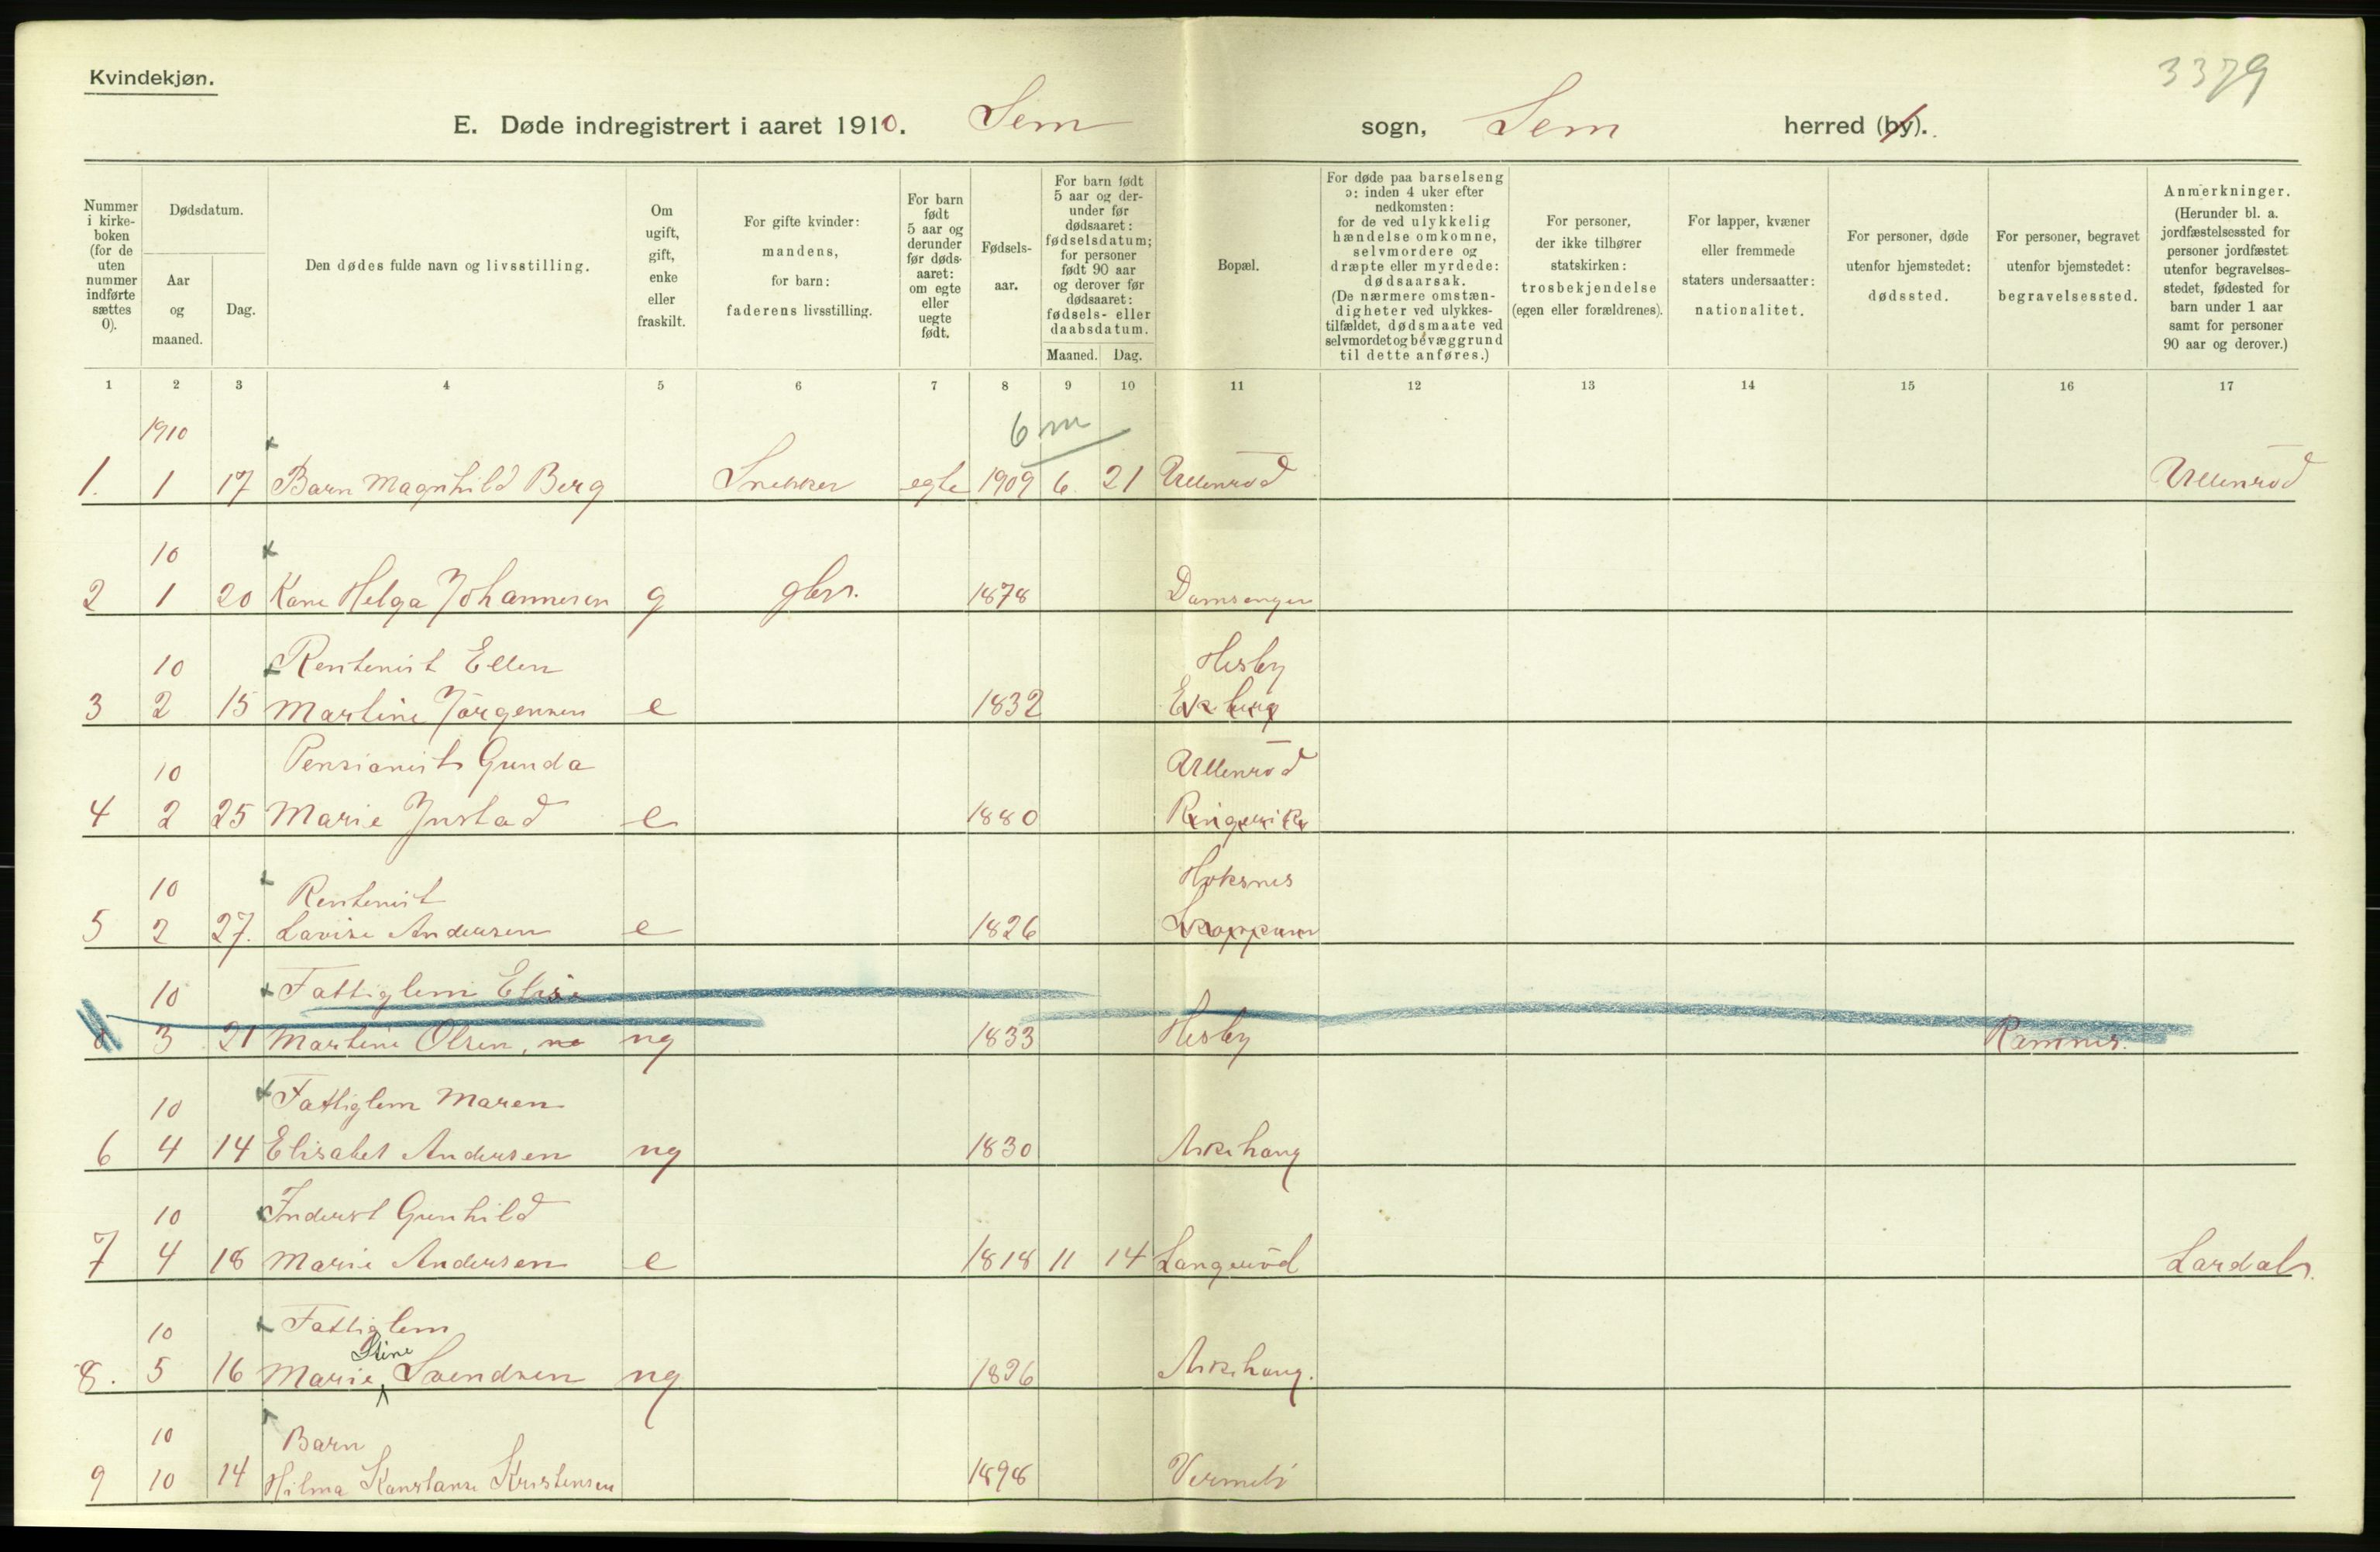 Kvindekjøn.
3379
E. Døde indregistrert i aaret 1910. Sem sogn, Sem herred (by).
Nummer i kirke-boken (for de uten nummer indførte sættes 0).
Dødsdatum.
Aar og maaned.
Dag.
Den dødes fulde navn og livsstilling.
Om ugift, gift, enke eller fraskilt.
For gifte kvinder: mandens, for barn: faderens livsstilling.
For barn født 5 aar og derunder før døds-aaret: om egte eller uegte født.
Fødsels-aar.
For barn født 5 aar og der-under før dødsaaret: fødselsdatum; for personer født 90 aar og derover før dødsaaret: fødsels- eller daabsdatum.
Maaned. Dag.
Bopæl.
For døde paa barselseng ɔ: inden 4 uker efter nedkomsten: for de ved ulykkelig hændelse omkomne, selvmordere og dræpte eller myrdede: dødsaarsak. (De nærmere omstæn-digheter ved ulykkes-tilfældet, dødsmaate ved selvmordet og bevæggrund til dette anføres.)
For personer, der ikke tilhører statskirken: trosbekjendelse (egen eller forældrenes).
For lapper, kvæner eller fremmede staters undersaatter: nationalitet.
For personer, døde utenfor hjemstedet: dødssted.
For personer, begravet utenfor bjemstedet: begravelsessted.
Anmerkninger. (Herunder bl. a. jordfæstelsessted for personer jordfæstet utenfor begravelses-stedet, fødested for barn under 1 aar samt for personer 90 aar og derover.)
1 2 3 4 5 6 7 8 9 10 11 12 13 14 15 16 17
1910 6 m
1. 1 17 Barn Magnhild Berg Snekker egte 1909 6 21 Ullenrød Ullenrød
10
2 1 20 Kone Helga Johannesen g gbr. 1878 Damsengen
10 Rentenist Ellen Hesby
3 2 15 Martine Jørgensen e 1832 Ekeberg
10 Pensionist Gunda Ullenrød
4 2 25 Marie Justad e 1880 Ringerike
10 Rentenist
5 2 27. Lovise Andersen e 1826
10 Fattiglem Elise
3 21 Martine Olsen, ug 1833 Hesby Ramnes.
10 Fattiglem Maren
6 4 14 Elisabet Andersen ug 1830 Askehaug
10 Inderst Gunhild
7 4 18 Marie Andersen e 1818 11 14 Langerød Lardal
10 Fattiglem
Stine
8. 5 16 Marie Svendsen ug 1826 Askehaug.
10 Barn
9 10 14 Hilma Konstanse Kristensen 1898